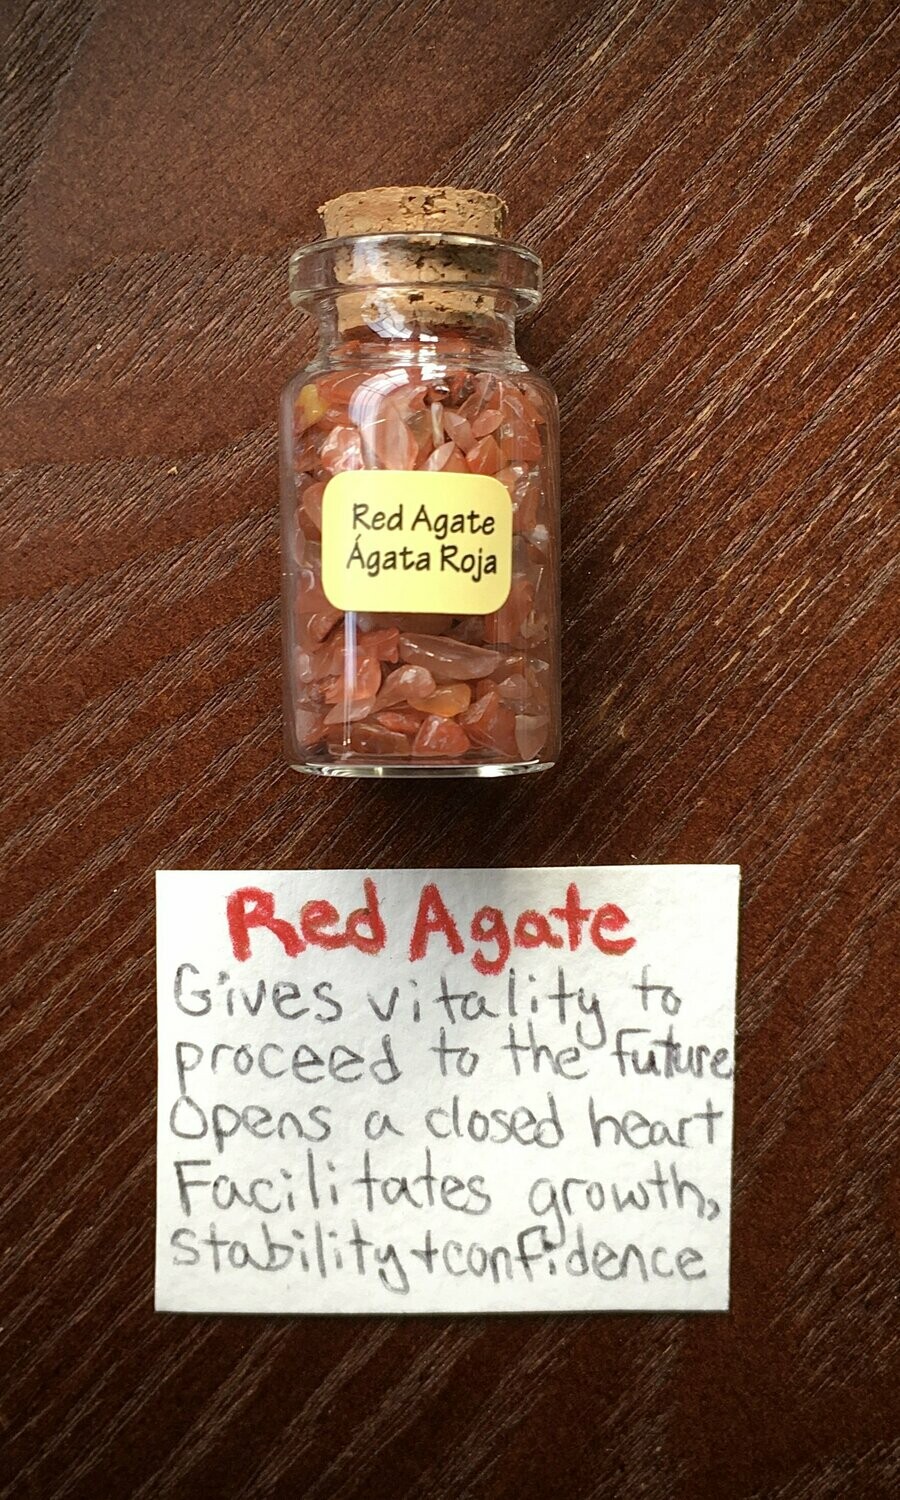 Red Agate
Ágata Roja
Red Agate
Gives vitality to
proceed to the future
Opens a closed heart
Facilitates growth,
stability + confidence